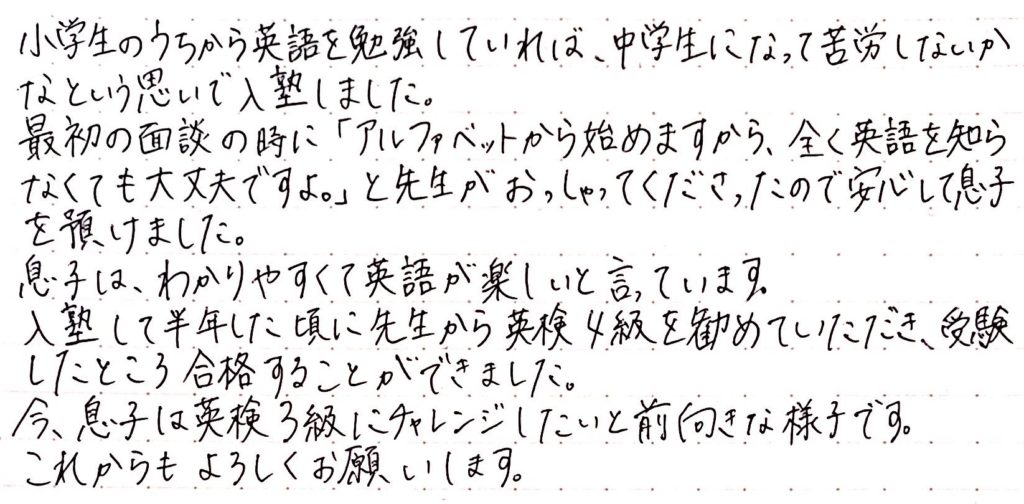 小学生のうちから英語を勉強していれば、中学生になって苦労しないか
なという思いで入塾しました。
最初の面談の時に「アルファベットから始めますから、全く英語を知ら
なくても大丈夫ですよ。」と先生がおっしゃってくださったので安心して息子
を預けました。
息子は、わかりやすくて英語が楽しいと言っています。
入塾して半年した頃に先生から英検4級を勧めていただき、受験
したところ合格することができました。
今、息子は英検3級にチャレンジしたいと前向きな様子です。
これからもよろしくお願いします。